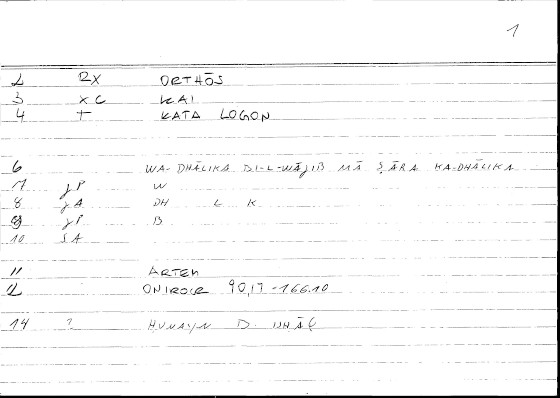 1
2 RX ORTHŌS
3 XC KAI
4 + KATA LOGON
6 WA-DHĀLIKA BI-L-WĀJIB MĀ ṢĀRA KA-DHĀLIKA
7 JP W
8 JA DH L K
9 JP B
10 SA
11 ARTEM
12 ONIROCR 90,17-166.10
14 ? HUNAYN B.